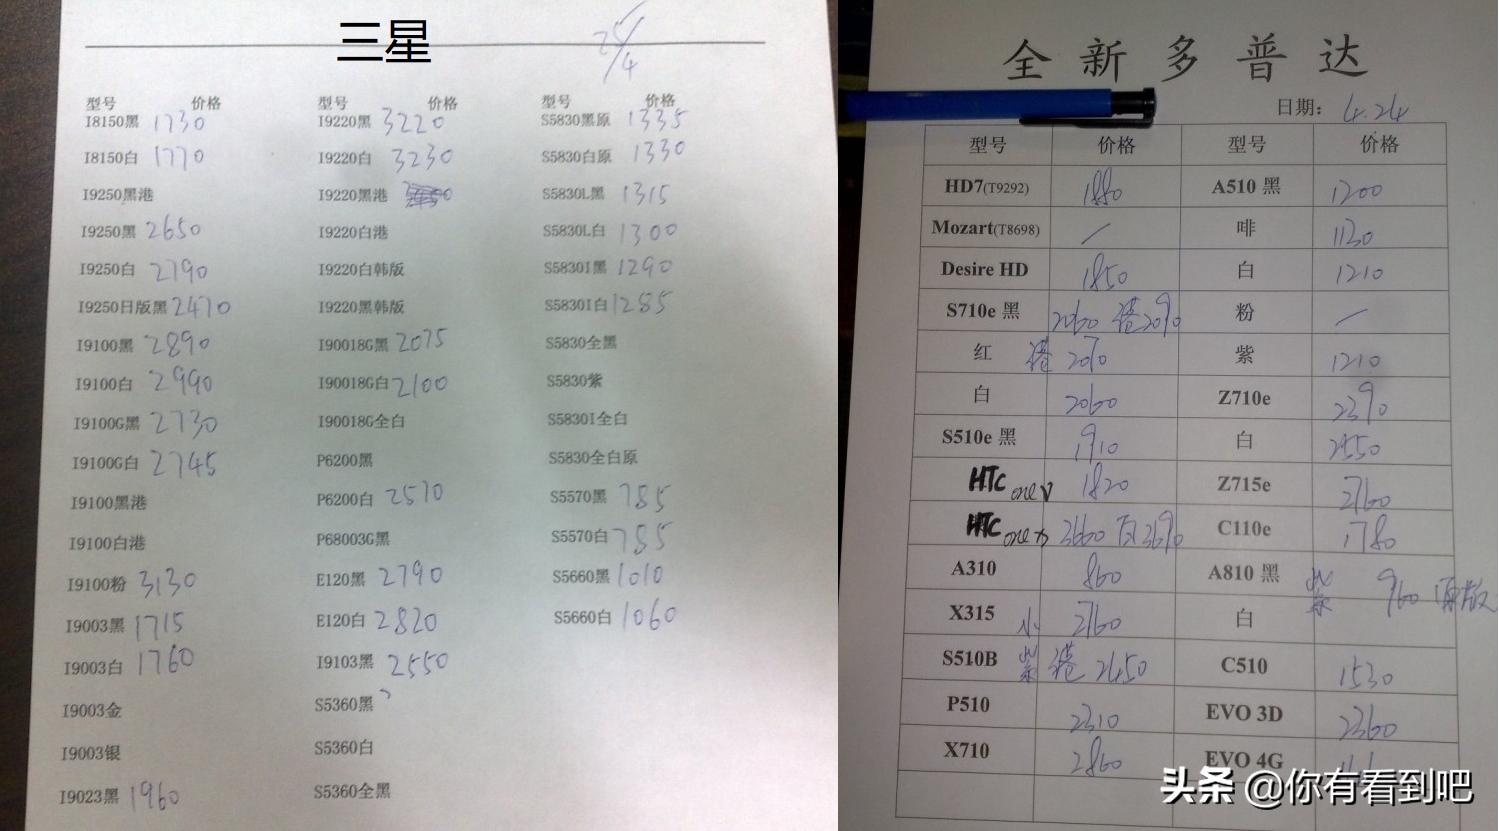 三星
25/4
型号 价格 型号 价格 型号 价格
I8150黑 1730 I9220黑 3220 S5830黑原 1335
I8150白 1770 I9220白 3230 S5830白原 1330
I9250黑港 I9220黑港 S5830L黑 1315
I9250黑 2650 I9220白港 S5830L白 1300
I9250白 2790 I9220白韩版 S5830I黑 1290
I9250日版黑 2470 I9220黑韩版 S5830I白 1285
I9100黑 2890 I90018G黑 2075 S5830全黑
I9100白 2990 I90018G白 2100 S5830紫
I9100G黑 2730 I90018G全白 S5830I全白
I9100G白 2745 P6200黑 S5830全白原
I9100黑港 P6200白 2570 S5570黑 785
I9100白港 P68003G黑 S5570白 785
I9100粉 3130 E120黑 2790 S5660黑 1010
I9003黑 1715 E120白 2820 S5660白 1060
I9003白 1760 I9103黑 2550
I9003金 S5360黑
I9003银 S5360白
I9023黑 1960 S5360全黑
全新多普达
日期： 4.24
型号 价格 型号 价格
HD7(T9292) 1880 A510 黑 1200
Mozart(T8698) / 啡 1130
Desire HD 1850 白 1210
S710e 黑 2060 港2090 粉 /
红 港 2070 紫 1210
白 2060 Z710e 2390
S510e 黑 1910 白 2550
HTC one V 1820 Z715e 2760
HTC one X 3660 白3690 C110e 1780
A310 860 A810 黑 紫 960 原版
X315 小 2760 白
S510B 紫 港 2450 C510 1530
P510 2310 EVO 3D 2360
X710 2860 EVO 4G
头条 @你有看到吧